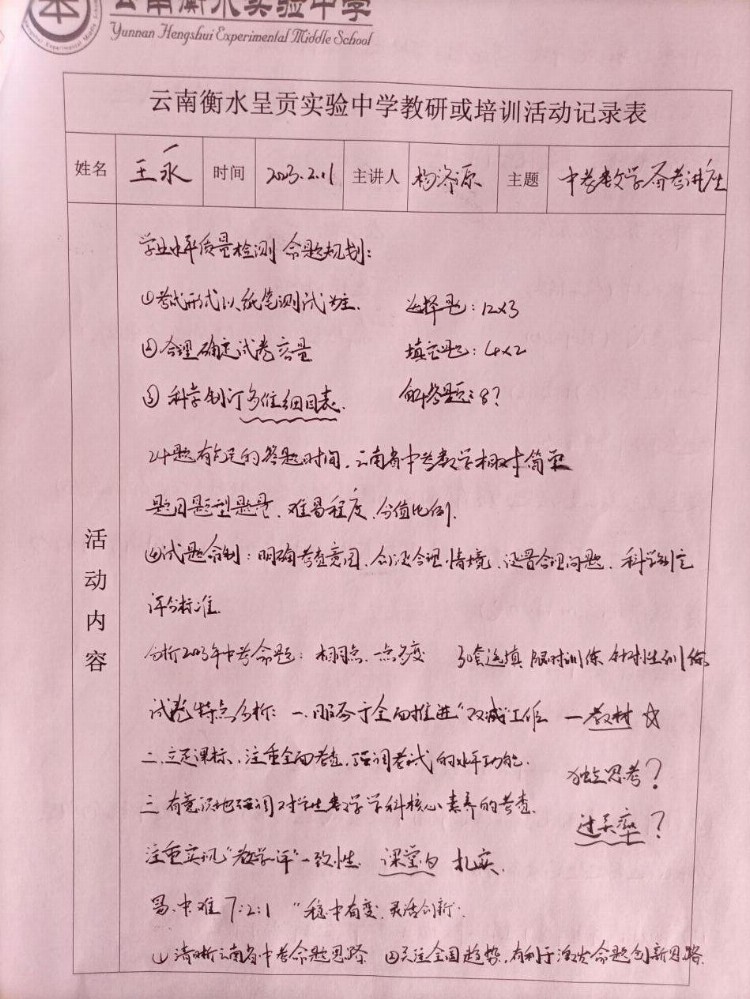 云南衡水实验中学
Yunnan Hengshui Experimental Middle School
云南衡水呈贡实验中学教研或培训活动记录表
姓名 王永 时间 2023.2.11 主讲人 杨济源 主题 中考数学备考讲座
活动内容
学业水平质量检测命题规划:
①考试形式以纸笔测试为主. 选择题:12×3
②合理确定试卷容量 填空题:4×2
③科学制订多维细目表. 解答题:8?
24题有充足的答题时间,云南省中考数学相对简单
题目题型题量、难易程度、分值比例.
④试题命制:明确考查意图、创设合理情境、设置合理问题、科学制定
评分标准.
分析2023年中考命题:相同点、一点多变 3套选填 限时训练 针对性训练
试卷特点分析:一、服务于全面推进"双减"工作 一教材☆
二、立足课标、注重全面考查,强调考试的水平功能. 独立思考?
三、有意识地强调对学生数学学科核心素养的考查. 过关率?
注重实现"教学评"一致性. 课堂内 扎实.
易、中、难 7:2:1 "稳中有变、灵活创新".
①清晰云南省中考命题思路 ②关注全国趋势,有利于激发命题创新思路